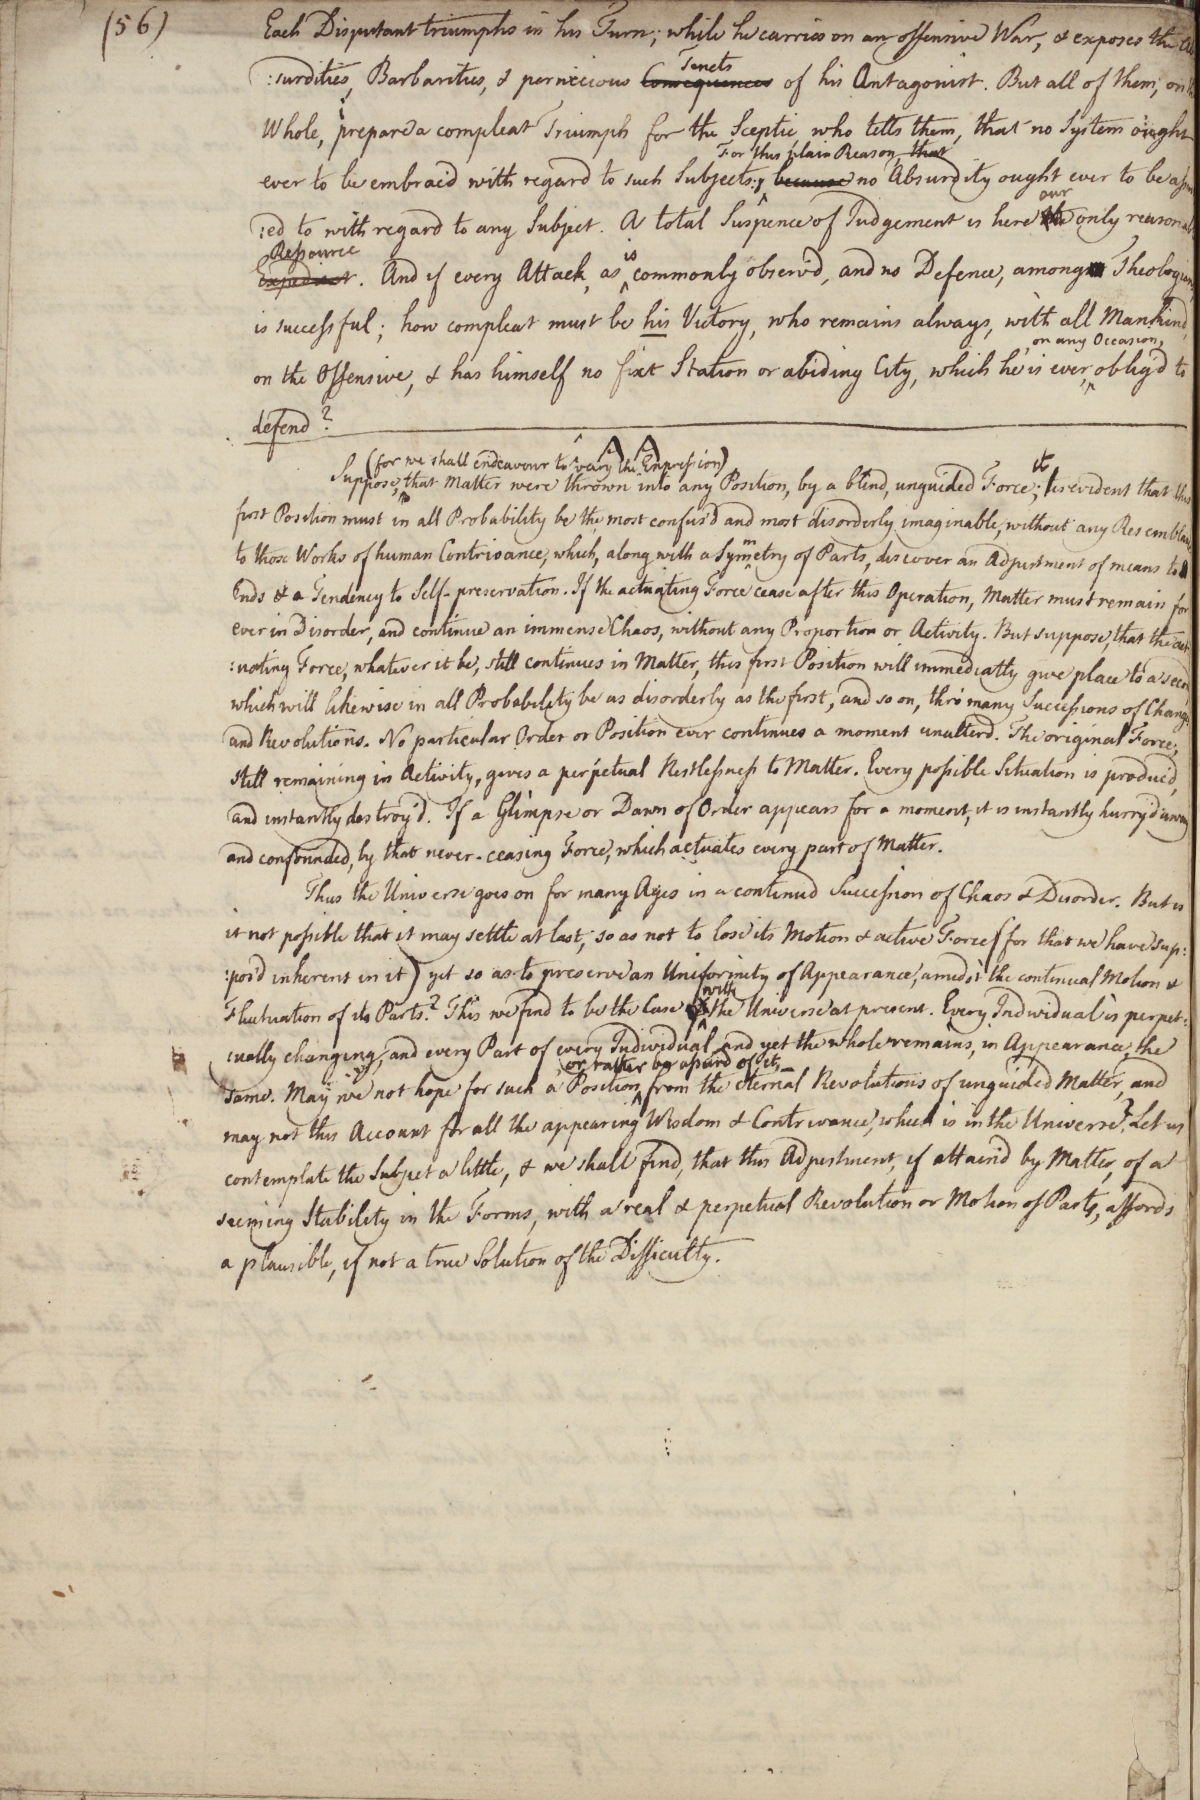 (56)
Each Disputant triumphs in his Turn; while he carries on an offensive War, & exposes the Ab
:surdities, Barbarities, & pernicious Consequences Tenets of his Antagonist. But all of them, on the
Whole, prepare a compleat Triumph for the Sceptic who tells them, that no System ought
For this plain Reason, that
ever to be embrac'd with regard to such Subjects: because no Absurdity ought ever to be assen
our
:ed to with regard to any Subject. A total Suspence of Judgement is here the only reasonable
Ressource
Expedient. And if every Attack, as is commonly observ'd, and no Defence, among Theologians,
is successful; how compleat must be his Victory, who remains always, with all Mankind,
on any Occasion,
on the Offensive, & has himself no fixt Station or abiding City, which he is ever oblig'd to
defend?
AA
(for we shall endeavour to vary the Expression)
Suppose, that Matter were thrown into any Position, by a blind, unguided Force; it is evident that this
first Position must in all Probability be the most confus'd and most disorderly imaginable, without any Resemblance
to those Works of human Contrivance, which, along with a Symmetry of Parts, discover an Adjustment of means to
Ends & a Tendency to Self-preservation. If the actuating Force cease after this Operation, Matter must remain for
ever in Disorder, and continue an immense Chaos, without any Proportion or Activity. But suppose, that the act
:uating Force, whatever it be, still continues in Matter, this first Position will immediatly give place to a second
which will likewise in all Probability be as disorderly as the first, and so on, thro' many Successions of Changes
and Revolutions. No particular Order or Position ever continues a moment unalterd. The original Force,
still remaining in Activity, gives a perpetual Restlessness to Matter. Every possible Situation is produc'd,
and instantly destroy'd. If a Glimpse or Dawn of Order appears for a moment, it is instantly hurry'd away
and confounded, by that never-ceasing Force, which actuates every part of Matter.
Thus the Universe goes on for many Ages in a continud Succession of Chaos & Disorder. But is
it not possible that it may settle at last, so as not to lose its Motion & active Force (for that we have sup:
:pos'd inherent in it) yet so as to preserve an Uniformity of Appearance, amidst the continual Motion &
Fluctuation of its Parts? This we find to be the Case with the Universe at present. Every Individual is perpet:
:ually changing, and every Part of every Individual, and yet the whole remains, in Appearance, the
or rather be assurd of it,
same. May we not hope for such a Position, from the eternal Revolutions of unguided Matter, and
may not this Account for all the appearing Wisdom & Contrivance, which is in the Universe? Let us
contemplate the Subject a little, & we shall find, that this Adjustment, if attain'd by Matter, of a
seeming Stability in the Forms, with a real & perpetual Revolution or Motion of Parts, affords
a plausible, if not a true Solution of the Difficulty.